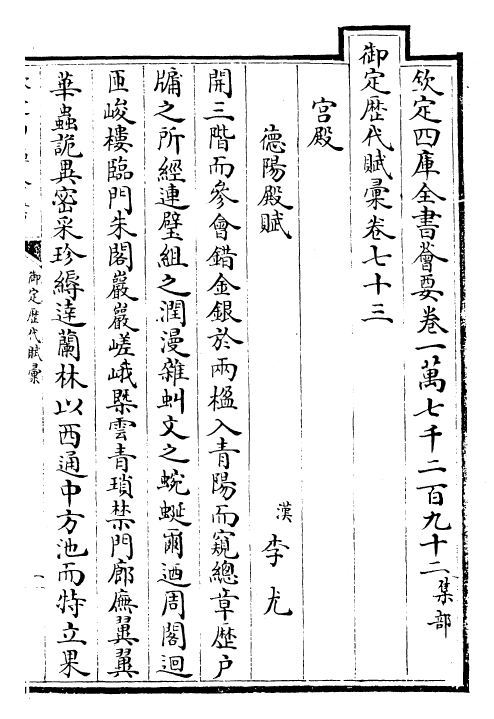 欽定四庫全書薈要卷一萬七千二百九十二集部
御定歷代賦彙卷七十三
宫殿
德陽殿賦
漢 李尤
開三階而參會錯金銀於兩楹入青陽而窺總章歷户
牖之所經連璧組之潤漫雜虯文之蜿蜒爾迺周閣迴
匝峻樓臨門朱閣巖巖嵯峨槩雲青瑣禁門廊廡翼翼
華蟲詭異密采珍縟達蘭林以西通中方池而特立果
御定歷代賦彙
一